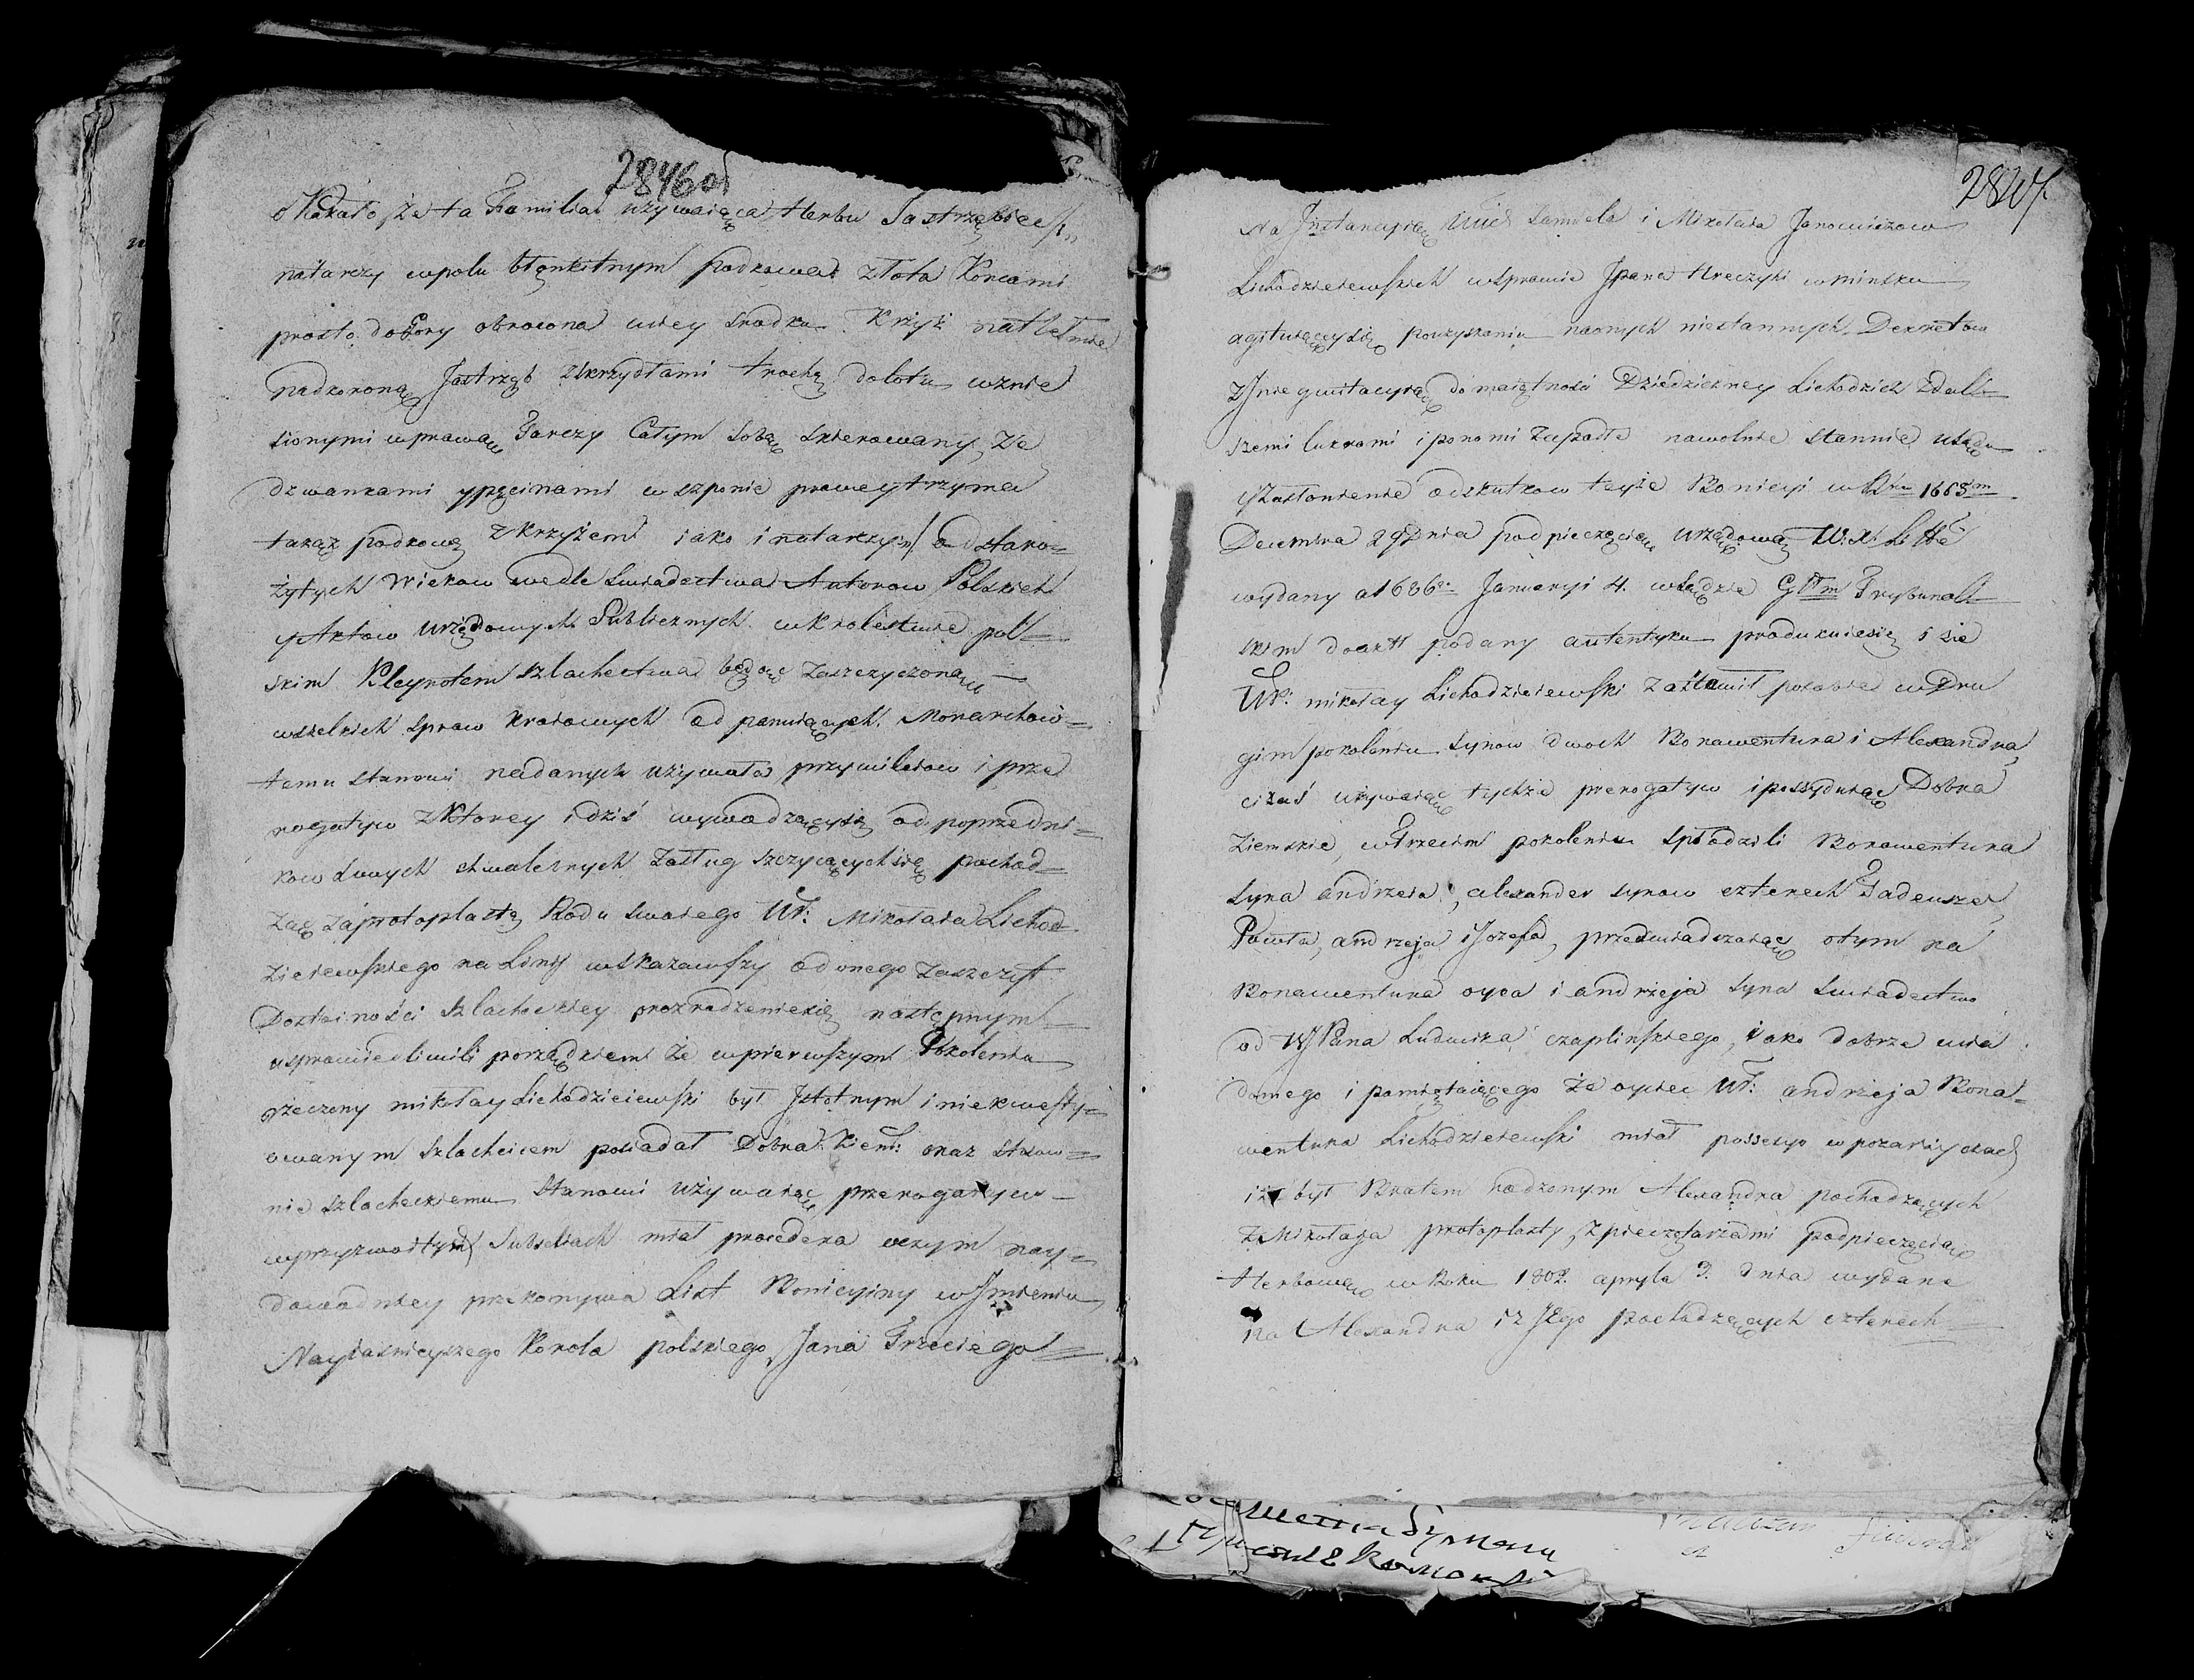 2846 об
okazało, że ta Familia używaiąca Herbu Jastrzębiec /:
natarczy wpolu błękitnym podkowa złota Koncami
prosto do Gory obrocona wiey srodku Krzyż nathełmie
nadkoroną Jastrząb zkrzydłami trochę dolotu wznie
sionymi wprawą Tarczy Całym sobą skierowany, ze
dzwankami ypęcinami w szponie prawey trzyma
takąż podkowę zkrzyżem iako inatarczy :/ odstaro=
żytych Wiekow wedle Swiadectwa Autorow Polskich
yAktow Urzędowych Publicznych wKrolestwie pol=
skim Kleynotem szlachectwa będąc zaszczyczoną
wszelkich spraw kraiowych od panuiących Monarchow=
temu stanowi nadanych używała przywileiow i pre
rogatyw zKtorey idziś wywodzącysię od poprzedni=
kow swych chwalebnych zasług szczycącychsię pochod=
zaprotoplastę Rodu swoiego Ur: Mikołaia Lichod
zieiewskiego na Linij wskazawszy odonego zaszczyt
Dostoiności szlacheckiey prozrodzeniesię następnym=
usprawiedliwili porządkiem że wpierwszym Pokoleniu
rzeczony mikołay Lichodzieiewski był Jstotnym i niekwesty=
owanym szlachcicem posiadał Dobra Ziem: oraz stosow=
nie szlacheckiemu Stanowi używaiąc prerogatyw=
wprzyzwoitych Subseliach miał procedera oczym nay=
dowodniey przekonywa List Bonicyiny wJmieniu
Nayiasnieyszego Krola polskiego Jana Trzeciego=
284/
Na Jnstancyią Samuela i Mikołaia Janowiczow
Lichodzieiewskich wsprawie Jpana Hreczyki w minsku
agituiącysię pouzyskaniu naonych niestannych Dekretow
do maiętnosci Dziedziczney Lichodzice zdal=
szemi lukrami iponomi zapadłe nawolnie stannie usądu
odskutkow teyże Bonicyi w 1685m
Decembra 29 Dnia podpieczęcią urzędową W: X: Litt:
wydany a 1686. Januaryi 4. wsądzie Głłm Trybunal=
skim doakt podany autentyku produkuiesię
Ur: mikołay Lichodzieiewski zostawił posobie wdru
gim pokoleniu synow dwoch Bonawentura i Alexandra,
ci zas używaiąc tychże prerogatyw ipossyduiąc Dobra
ziemskie, wTrzecim pokoleniu spłodzili Bonawentura
syna andrzeia, alexander synow czterech Tadeusza,
Pawła, andrzeja iJozefa, przeswiadszaiąc otym na
Bonawentura oyca i andrzeja syna swiadectwo
od WJPana Ludwika czaplinskiego, iako dobrze wia
domego i pamiętaiącego że oyciec Ur: andrzeja Bona=
wentura Lichodzieiewski miał possesyo wpozarzyckach
iże był Bratem rodzonym Alexandra pochodzących
zMikołaja protoplasty, zpieczętarzami podpieczęcią
Herbową wRoku 1802. apryla 3. dnia wydane
na Alexandra iz Jego pochodzących czterech=